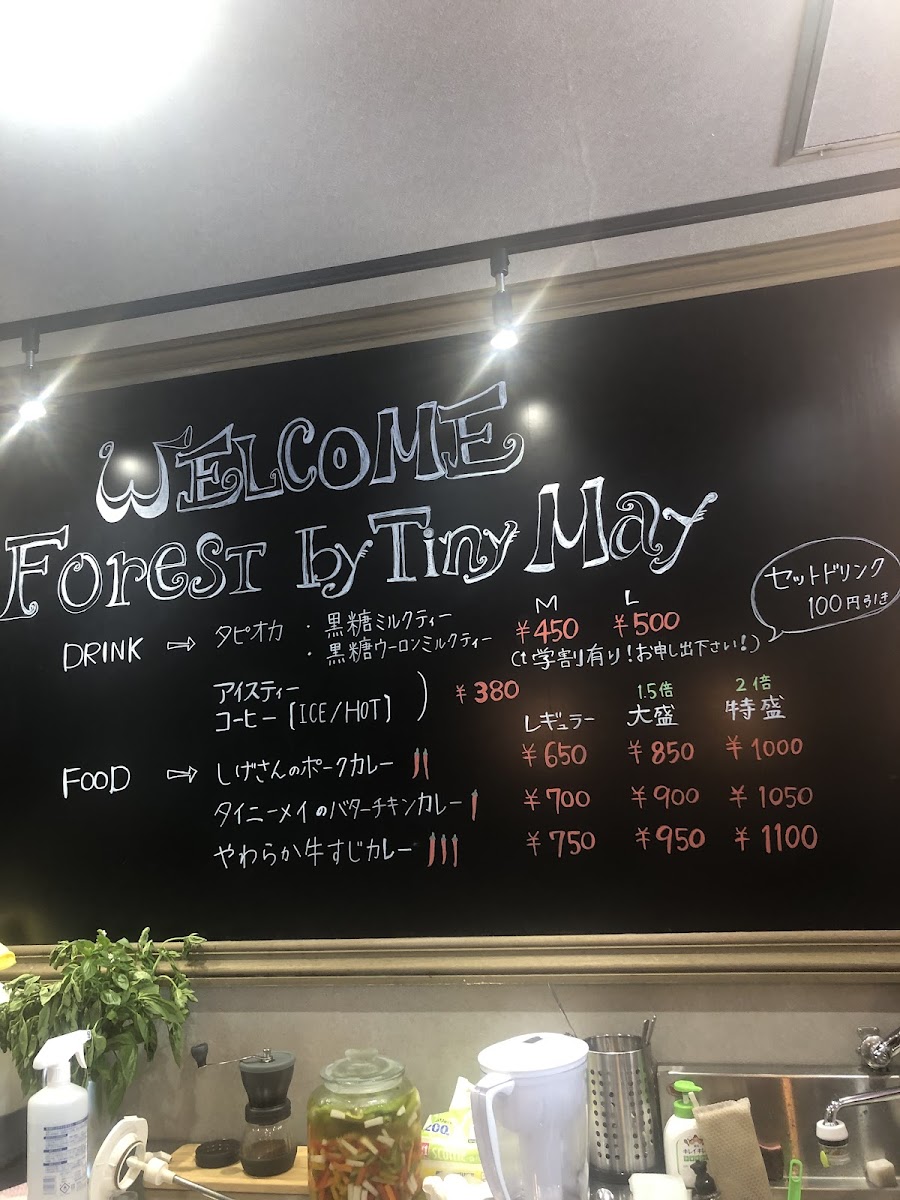 WELCOME
Forest by Tiny May
セットドリンク
100円引き
M L
DRINK ⇨ タピオカ ・黒糖ミルクティー ¥450 ¥500
・黒糖ウーロンミルクティー
(t学割有り!お申し出下さい!)
アイスティー
コーヒー [ICE/HOT] ) ¥380
1.5倍 2倍
レギュラー 大盛 特盛
FOOD ⇨ しげさんのポークカレー ¥650 ¥850 ¥1000
タイニーメイのバターチキンカレー ¥700 ¥900 ¥1050
やわらか牛すじカレー ¥750 ¥950 ¥1100
200